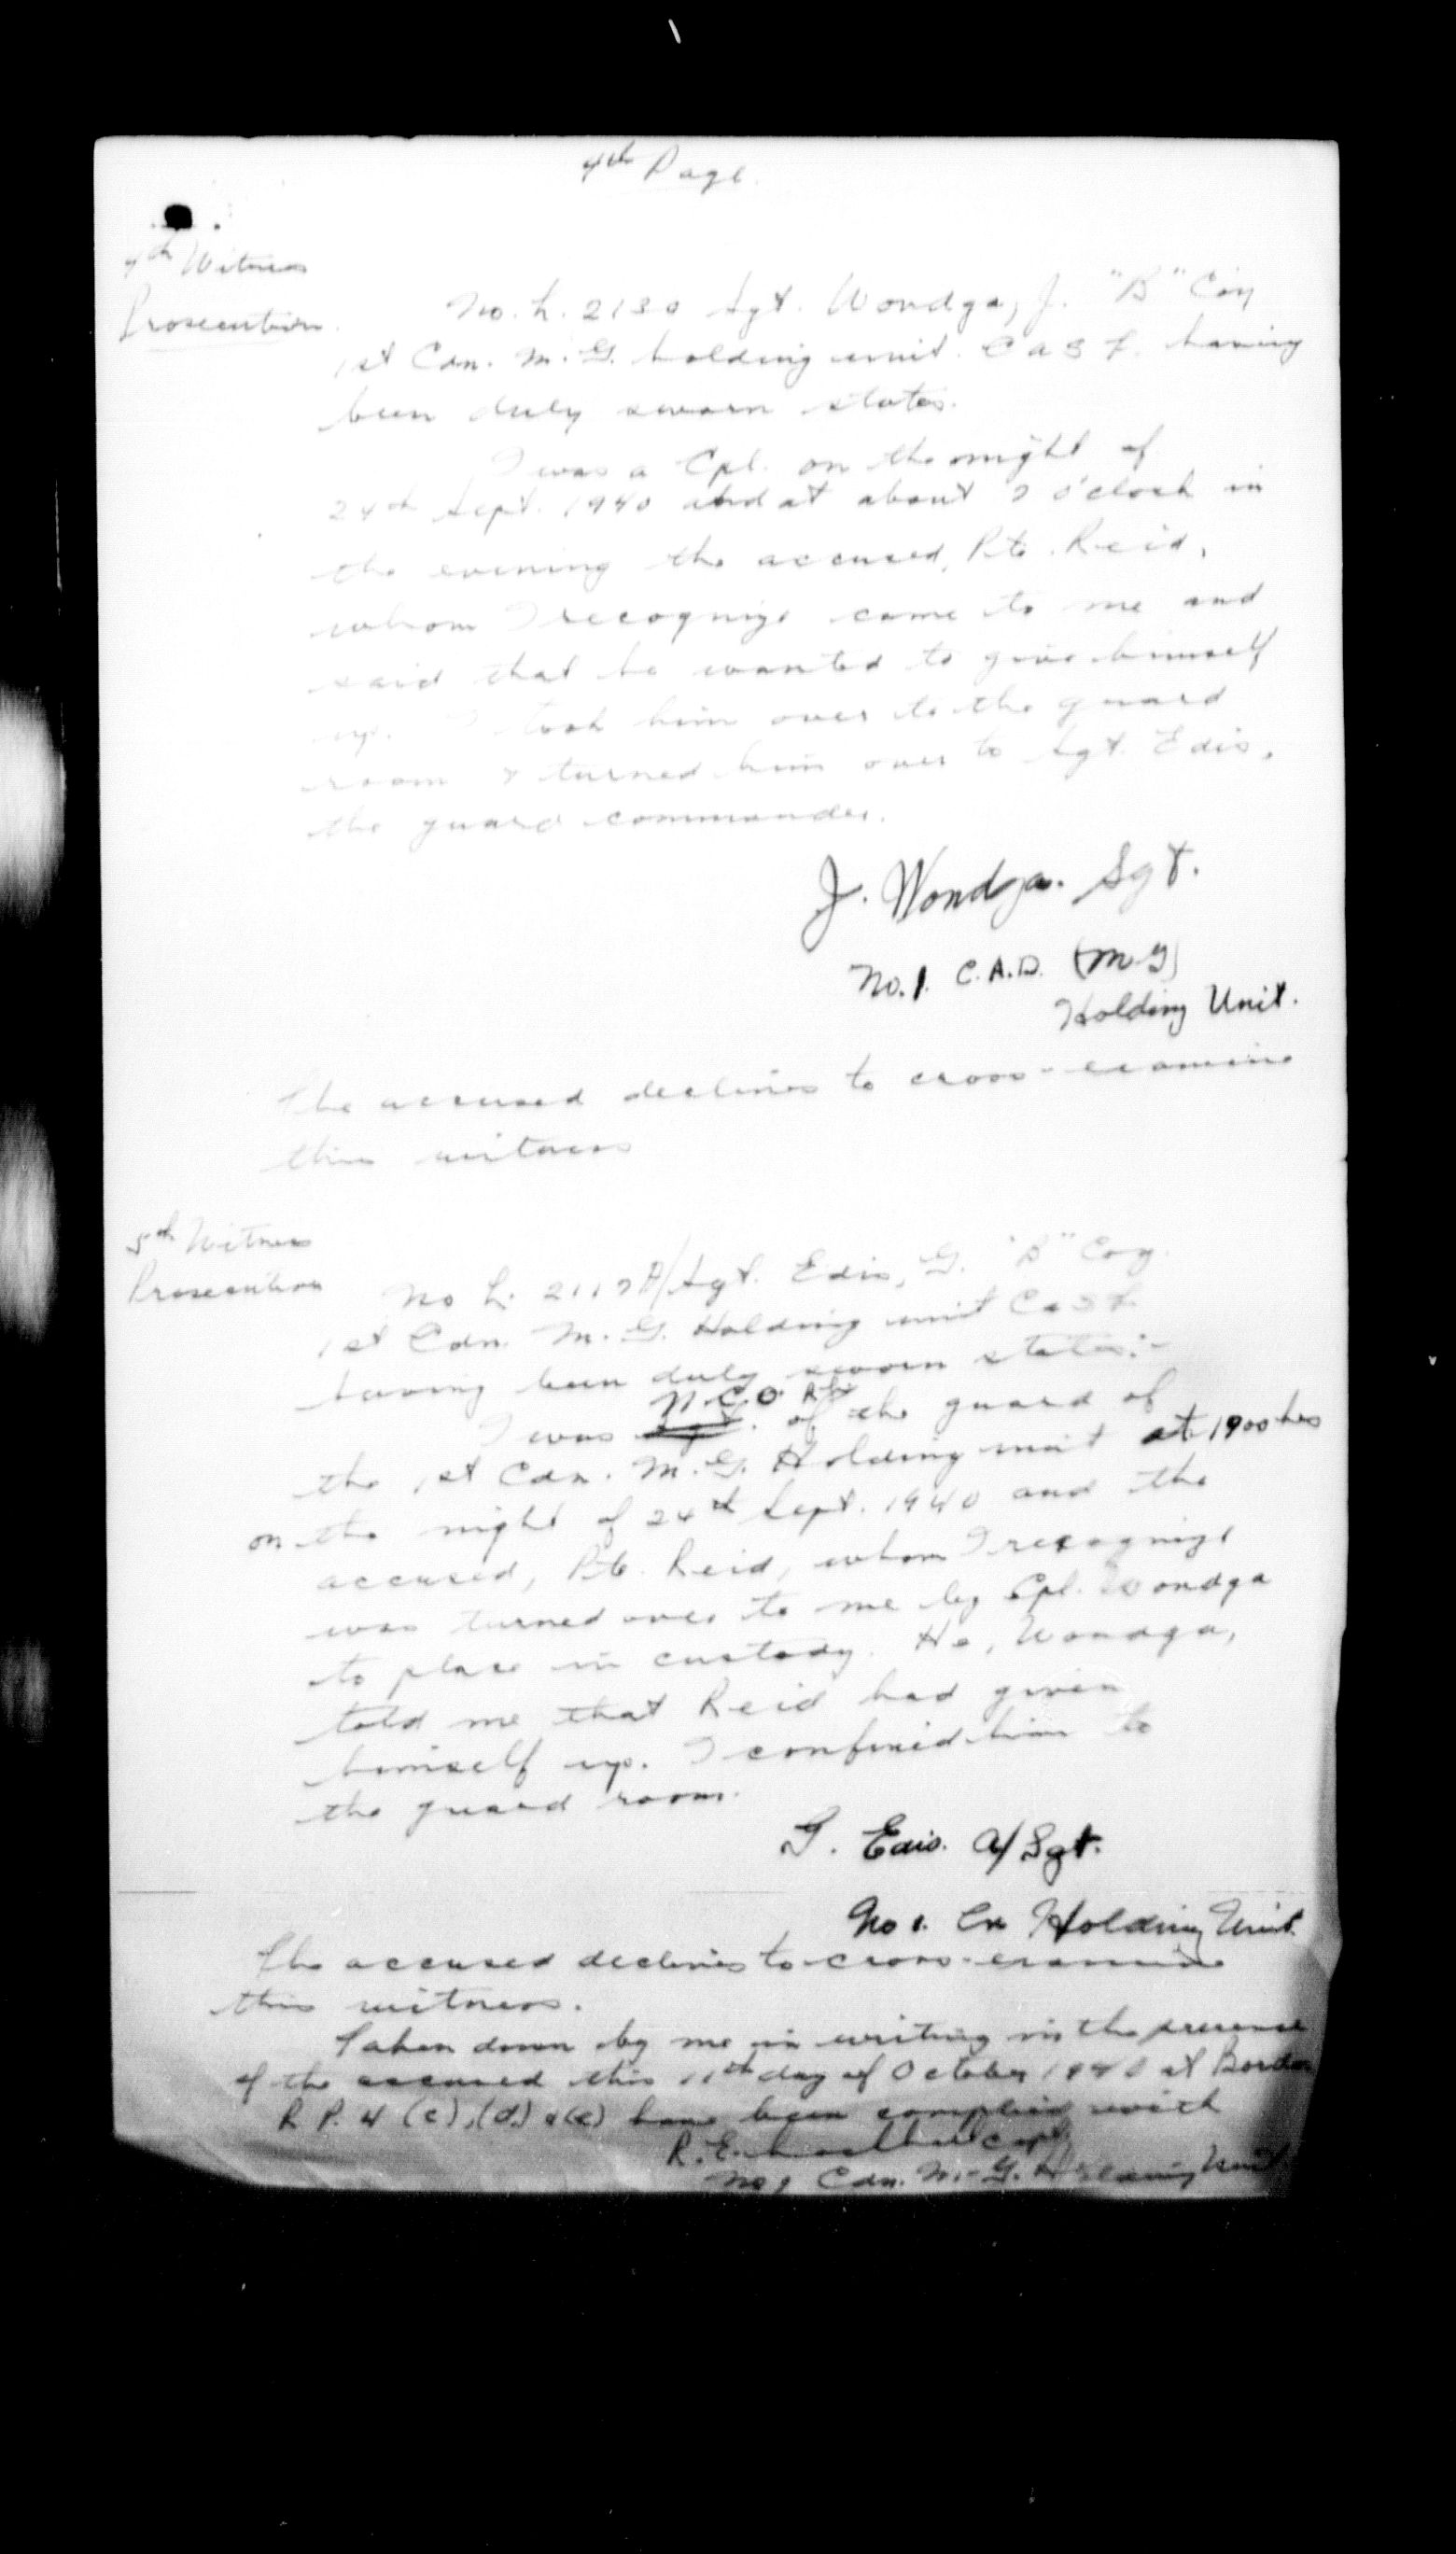 4th Page.
4th Witness
Prosecution.
No. L. 2130 Sgt. Wondga, J. "B" Coy
1st Cdn. M. G. holding unit. C A S F. having
been duly sworn states.
I was a Cpl. on the night of
24th Sept. 1940 and at about 7 o'clock in
the evening the accused, Pte. Reid,
whom I recognize came to me and
said that he wanted to give himself
up. I took him over to the guard
room & turned him over to Sgt. Edis,
the guard commander.
J. Wondga. Sgt.
No. 1. C.A.D. (M.G)
Holding Unit.
The accused declines to cross-examine
this witness
5th Witness
Prosecution
No L. 2117 A/Sgt. Edis, G. "B" Coy.
1st Cdn. M. G. Holding unit C A S F.
having been duly sworn states:-
N.C.O.
I was Sgt. of the guard of
the 1st Cdn. M. G. Holding unit at 1900 hrs
on the night of 24th Sept. 1940 and the
accused, Pte. Reid, whom I recognize
was turned over to me by Cpl. Wondga
to place in custody. He, Wondga,
told me that Reid had given
himself up. I confined him to
the guard room.
G. Edis. A/Sgt.
No 1. Cn Holding Unit.
The accused declines to cross-examine
this witness.
Taken down by me in writing in the presence
of the accused this 11th day of October 1940 at Bordon
R. P. 4 (c), (d) & (e) have been complied with
R. E. Capt
No 1 Cdn. M. G. Holding Unit